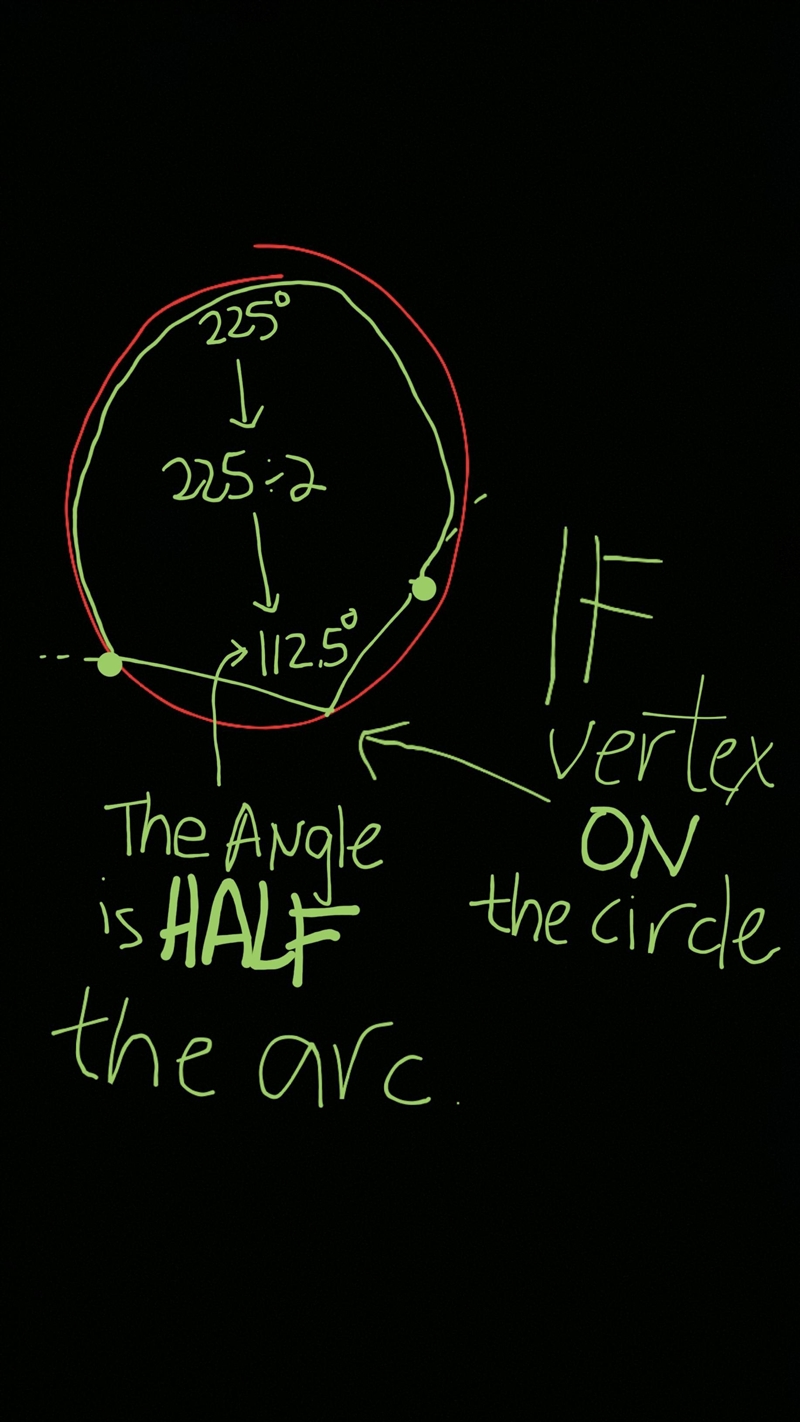 225°
225÷2
112.5°
IF
vertex
ON
the circle
The Angle
is HALF
the arc.